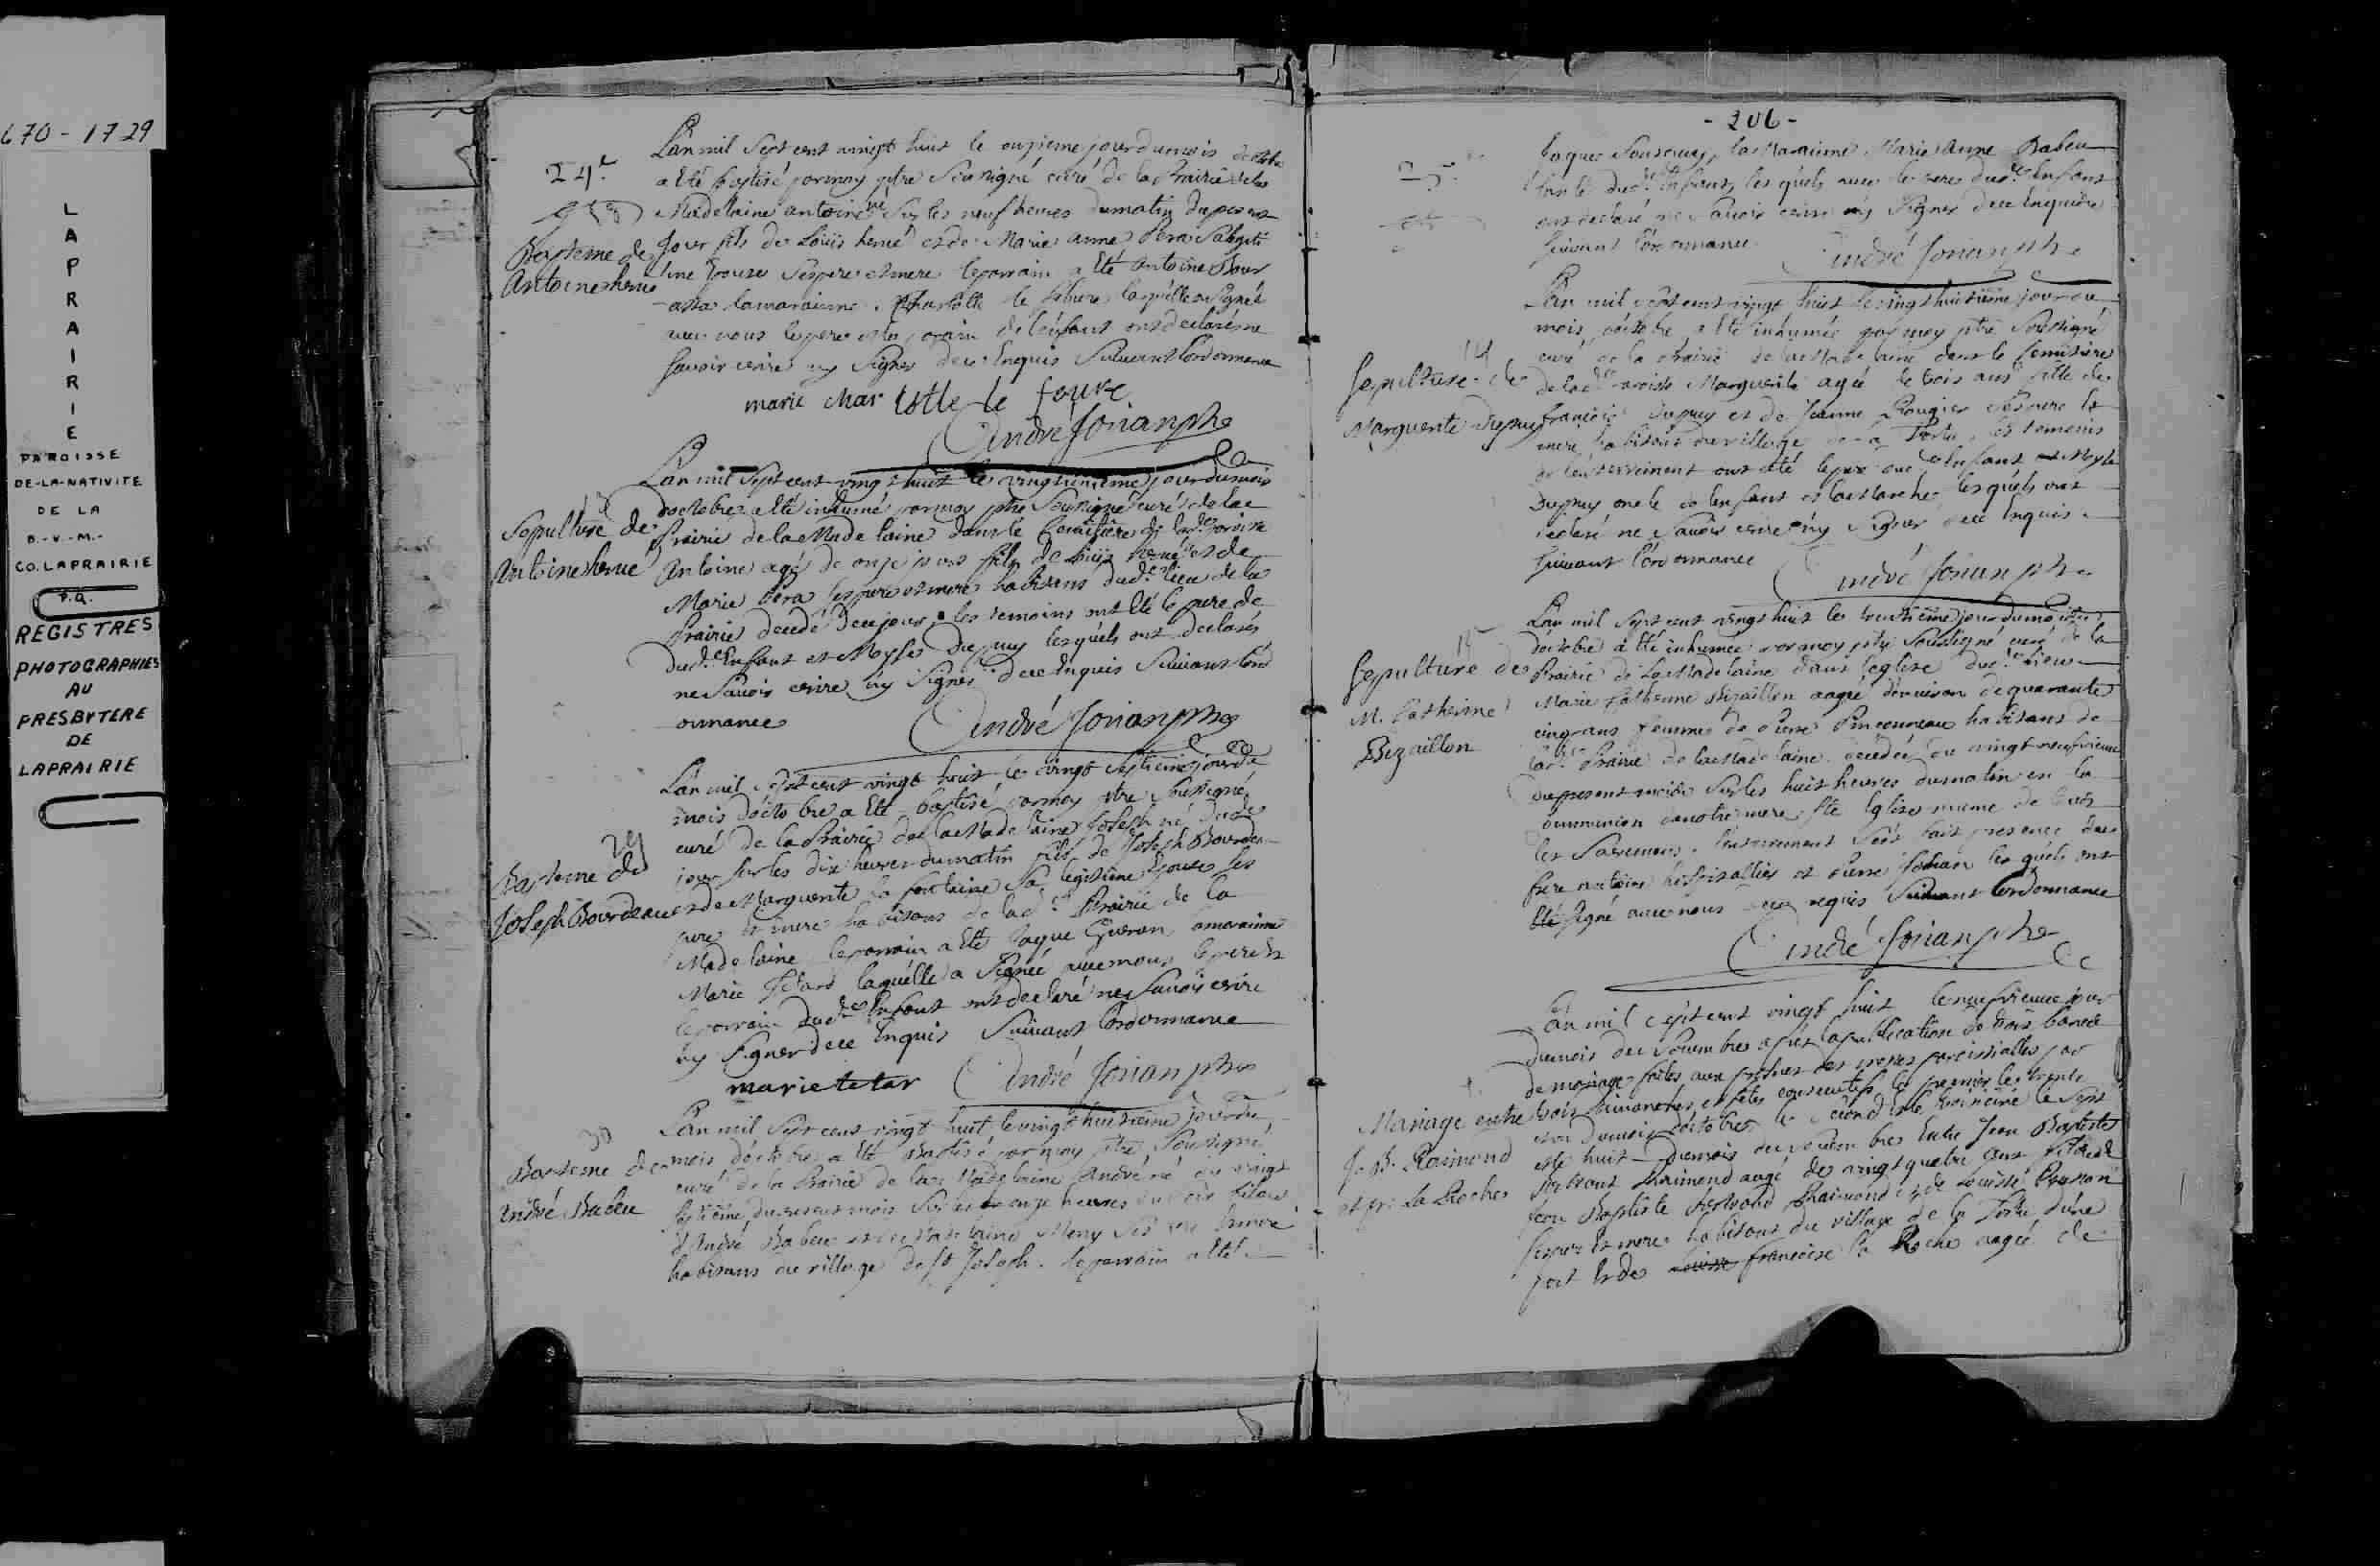 670-1729
LAPRAIRIE
PAROISSE
DE-LA-NATIVITE
DE LA
B.-V.-M.-
CO. LAPRAIRIE
P.Q.
REGISTRES
PHOTOGRAPHIES
AU
PRESBYTERE
DE
LAPRAIRIE
L'an mil sept cent vingt huit le onzieme jour du mois doctobre
a été baptisé par moy ptre soussigné curé de la Prairie de la
Madelaine antoine né sur les neuf heures du matin du present
Bapteme de
Antoine hemé
jour fils de Loüis hemé et de Marie anne
time Epouse ses pere et mere le parrain a été Antoine Bour
-assa la maraine Charlotte le febure laquelle a signé
avec nous le pere et le parain de l'enfant ont declaré ne
savoir ecrire ny signer de ce Enquis suivant l'ordonnance
marie Charlotte le feuvre
André Jorian ptre
L'an mil sept cent vingt huit le vingt uniéme jour du mois
doctobre a été inhumé par moy ptre soussigné curé de la
Sepulture de
Antoine hemé
Prairie de la Madelaine dans le Cemitiere de lad.e paroisse
Antoine agé de onze jours fils de Loüis hemé et de
Marie ses pere et mere habitans dud.e lieu de la
Prairie decedé de ce jour, les temoins ont été le pere de
dud.e Enfant et Moyse Dupuy lesquels ont declarés
ne savoir ecrire ny signer de ce Enquis suivant l'ord
onnance
André Jorian ptre
L'an mil sept cent vingt huit le vingt septieme jour du
mois doctobre a été baptisé par moy ptre soussigné
curé de la Prairie de la Madelaine Joseph né dude
29
Bapteme de
Joseph Bourdeau
jour sur les dix heures du matin fils de Joseph Bourdeau
et de Marguerite la fontaine sa legitime Epouse ses
pere et mere habitans de lad.e Prairie de la
Madelaine le parrain a été Jaque Gueron la maraine
Marie Tetard laquelle a signée avec nous le pere et
le parrain dud.e Enfant ont declaré ne savoir ecrire
ny signer de ce Enquis suivant l'ordonnance
marie tetar
André Jorian ptre
L'an mil sept cent vingt huit le vingt huitieme jour du
30
Bapteme de
André Babeu
mois doctobre a été Batisé par moy ptre soussigné
curé de la Prairie de la Madelaine André né du vingt
septiéme du present mois sur les onze heures du soir fils
d'André Babeu et de Madelaine Meny ses pere et mere
habitans du village de St Joseph. le parrain a été
- 206 -
Jaque Sousmuy, la Maraine Marie Anne Babeu
tante dud.e Enfant, les quels avec le pere dud.e Enfant
ont declaré ne savoir ecrire ny signer de ce Enquis
suivant l'ordonnance
André Jorian ptre
L'an mil sept cent vingt huit le vingt huitiéme jour du
mois doctobre a été inhumée par moy ptre soussigné
14
Sepulture de
Marguerite Dupuy
curé de la Prairie de la Madelaine dans le Cemitiere
de lad.e Paroisse Marguerite agée de trois ans fille de
francois Dupuy et de Jeanne Rougier ses pere et
mere habitans du village de la Tortu, les temoins
de l'enterrement ont été le pere dud.e Enfant et Moyse
Dupuy oncle de l'enfant lesquels ont
declaré ne savoir ecrire ny signer de ce Enquis
suivant l'ordonnance
André Jorian ptre
L'an mil sept cent vingt huit le trentiéme jour du mois
doctobre a été inhumée par moy ptre soussigné curé de la
Sepulture de
M. Catherine
Bizaillon
Prairie de la Madelaine dans l'eglise dud.e lieu
Marie Catherine Bizaillon aagée d'environ de quarante
cinq ans femme de Pierre Pinsonneau habitans de
lad.e Prairie de la Madelaine decedée du vingt neuvieme
du present mois sur les huit heures du matin en la
communion de notre mere Ste Eglise munie de tous
les Sacremens, l'enterrement s'est fait presence de
frere antoine hospitallier et Pierre Johan lesquels ont
signé avec nous de ce requis suivant l'ordonnance
André Jorian ptre
L'an mil sept cent vingt huit le neufvieme jour
du mois de Novembre aprés la publication de trois bancs
de mariage faites aux prones des messes paroissialles par
Mariage entre
J. B. Raimond
et fr. La Roche
trois dimanches et fetes consecutifs le premier le trente
du mois doctobre le second et le troisieme le sept
et le huit du mois de Novembre Entre Jean Baptiste
Raimond aagé de vingt quatre ans fils de
Jean Baptiste Raimond et de Louise
ses pere et mere habitans du village de la Tortu d'une
part et de francoise la Roche aagée de